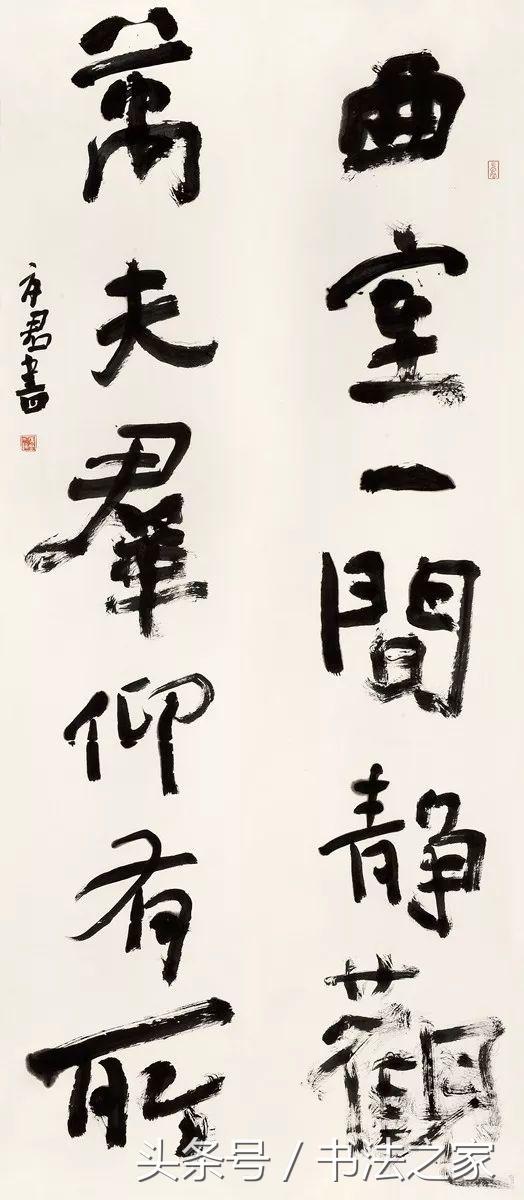 曲室一間静觀
萬夫羣仰有所
君書
头条号 / 书法之家